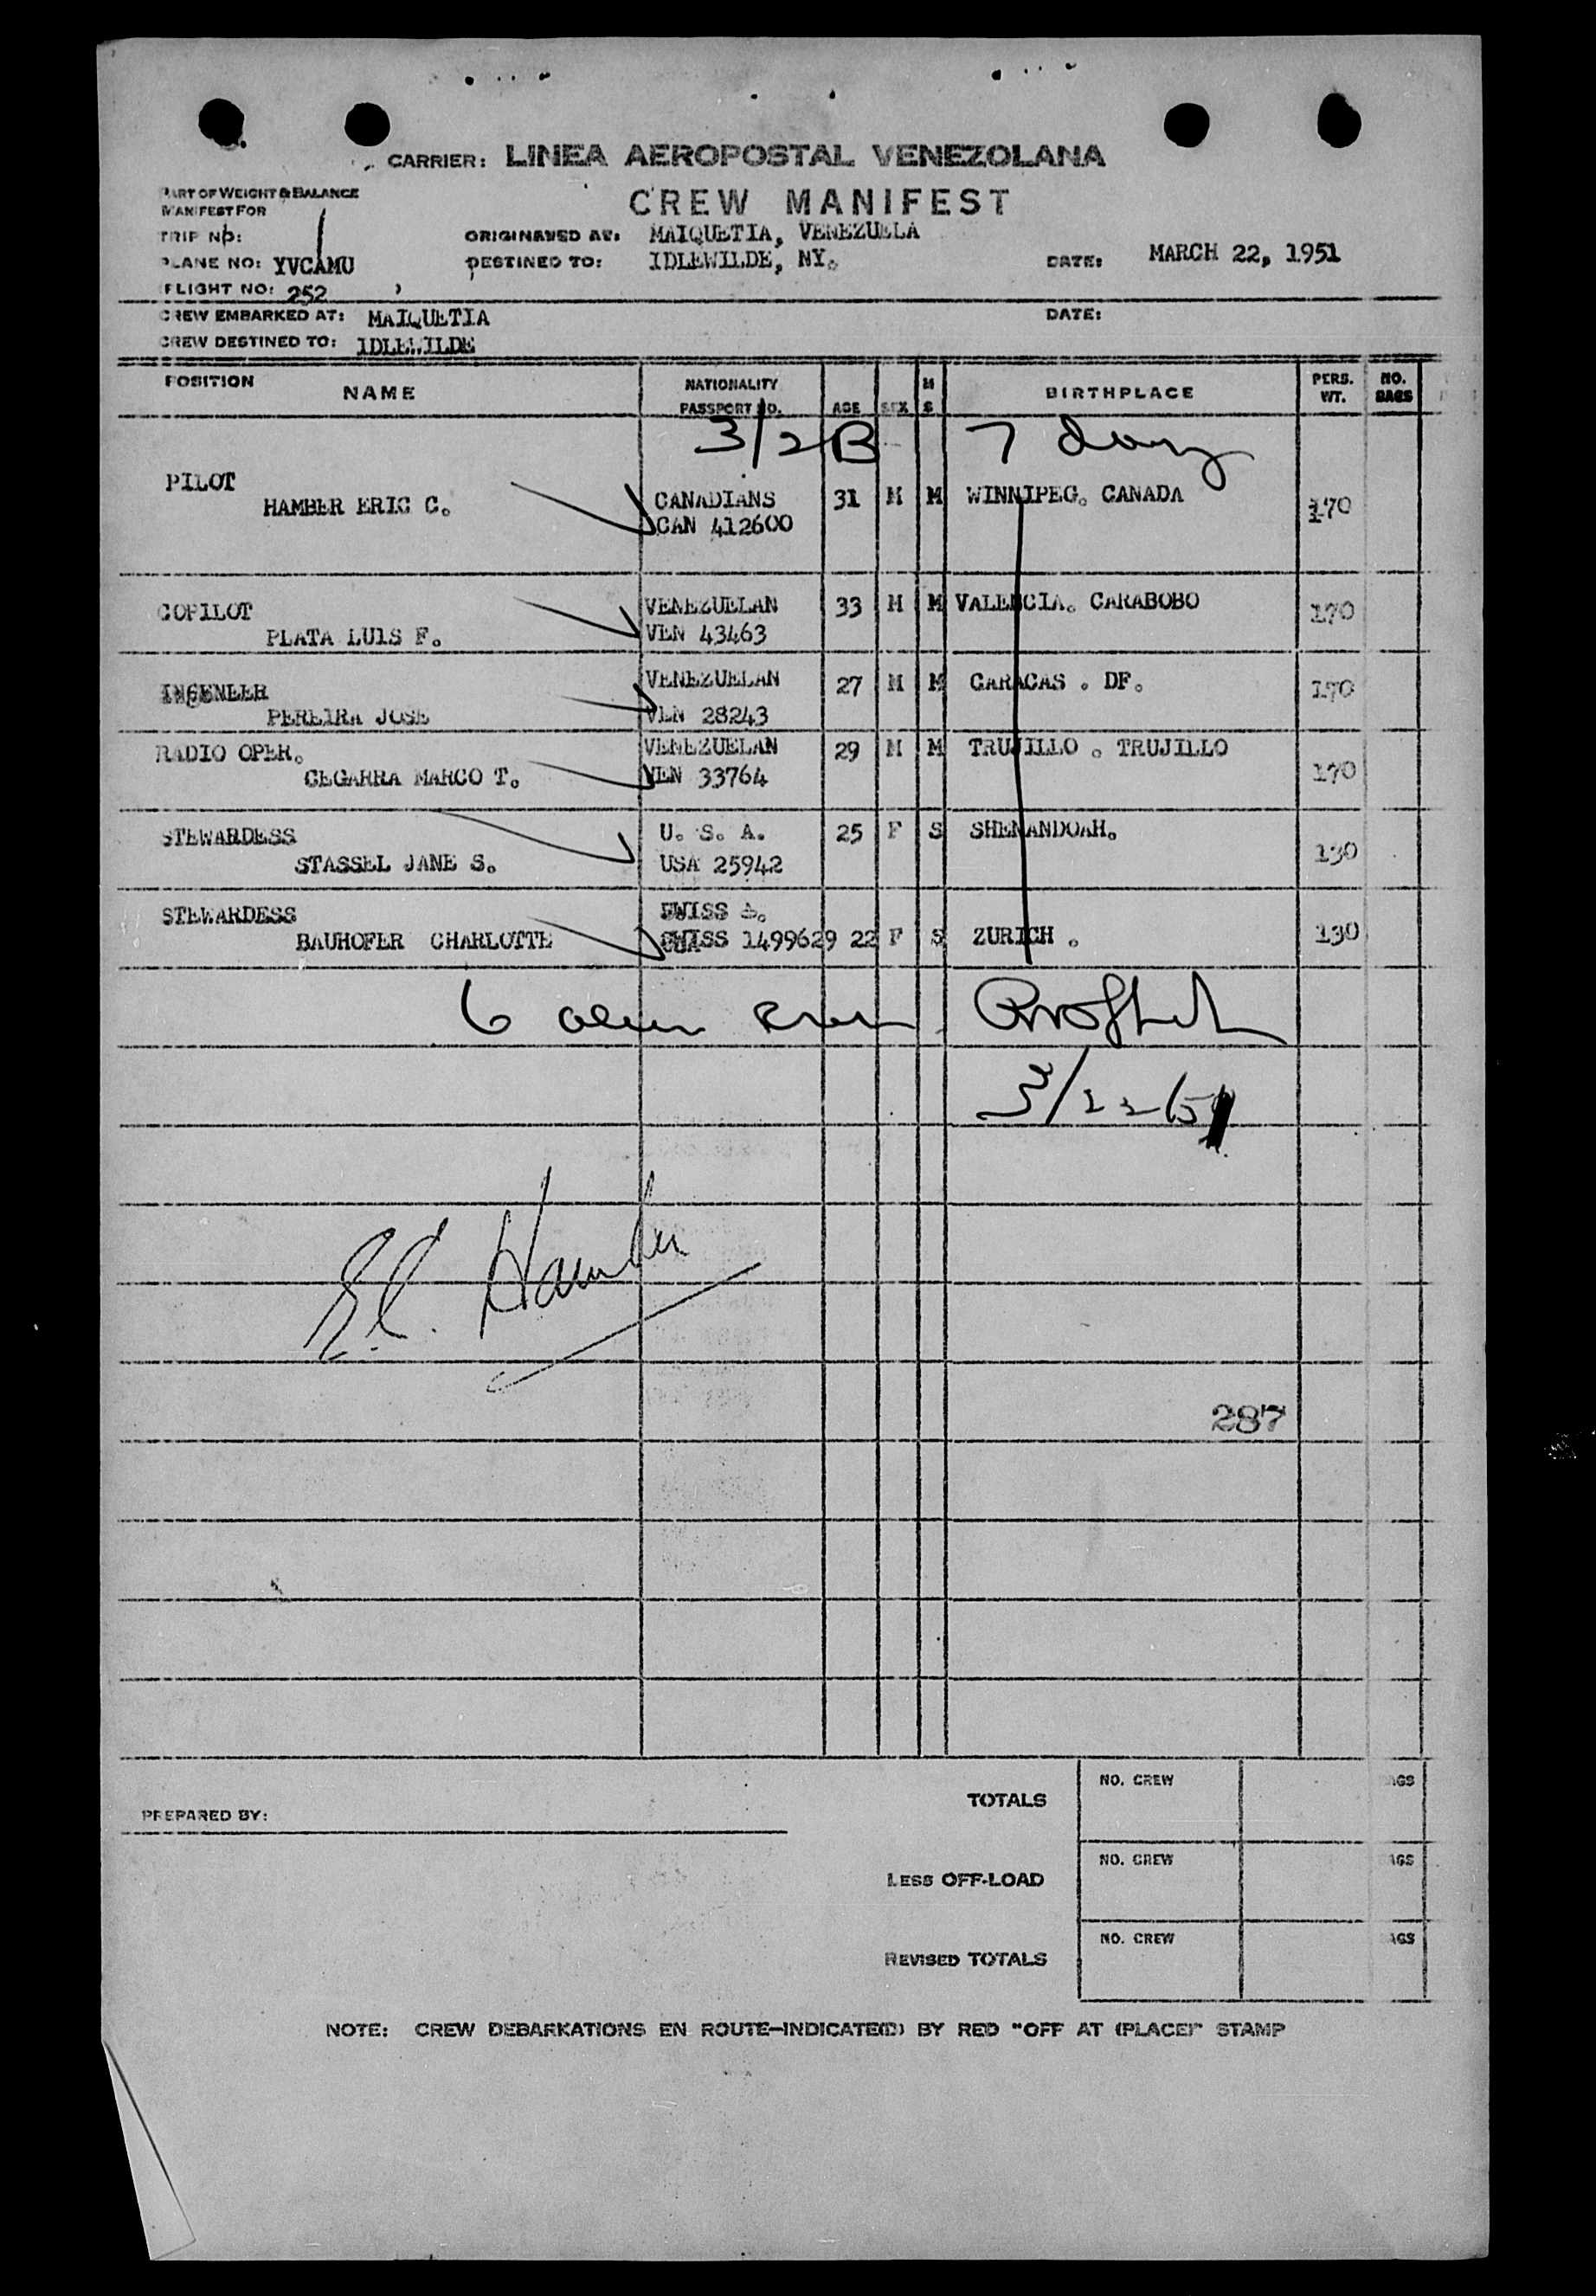 CARRIER: LINEA AEROPOSTAL VENEZOLANA
PART OF WEIGHT & BALANCE
MANIFEST FOR
CREW MANIFEST
TRIP NO:
ORIGINATED AT: MAIQUETIA, VENEZUELA
PLANE NO: YVCAMU
DESTINED TO: IDLEWILDE, NY.
DATE: MARCH 22, 1951
FLIGHT NO: 252
CREW EMBARKED AT: MAIQUETIA
DATE:
CREW DESTINED TO: IDLEWILDE
POSITION NAME NATIONALITY PASSPORT NO. AGE SEX M S BIRTHPLACE PERS. WT. NO. BAGS
3/2B 7 day
PILOT
HAMBER ERIC C. CANADIANS 31 M M WINNIPEG. CANADA 170
CAN 412600
COPILOT VENEZUELAN 33 M M VALENCIA. CARABOBO 170
PLATA LUIS F. VEN 43463
INGENEER VENEZUELAN 27 M M CARACAS . DF. 170
PEREIRA JOSE VEN 28243
RADIO OPER. VENEZUELAN 29 M M TRUJILLO . TRUJILLO 170
CEGARRA MARCO T. VEN 33764
STEWARDESS U. S. A. 25 F S SHENANDOAH. 130
STASSEL JANE S. USA 25942
STEWARDESS SWISS
BAUHOFER CHARLOTTE SWISS 1499629 22 F S ZURICH . 130
6 alien crew
3/22/51
E.C. Hamber
287
PREPARED BY:
TOTALS NO. CREW
LESS OFF-LOAD NO. CREW
REVISED TOTALS NO. CREW
NOTE: CREW DEBARKATIONS EN ROUTE—INDICATE(D) BY RED "OFF AT (PLACE)" STAMP